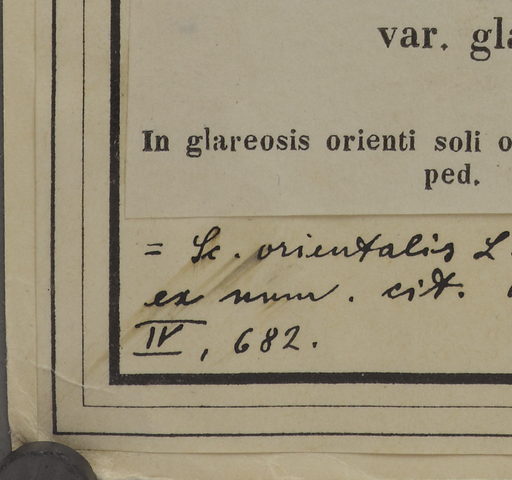 var. gla
In glareosis orienti soli o
ped.
= Sc. orientalis L.
ex num. cit.
IV, 682.